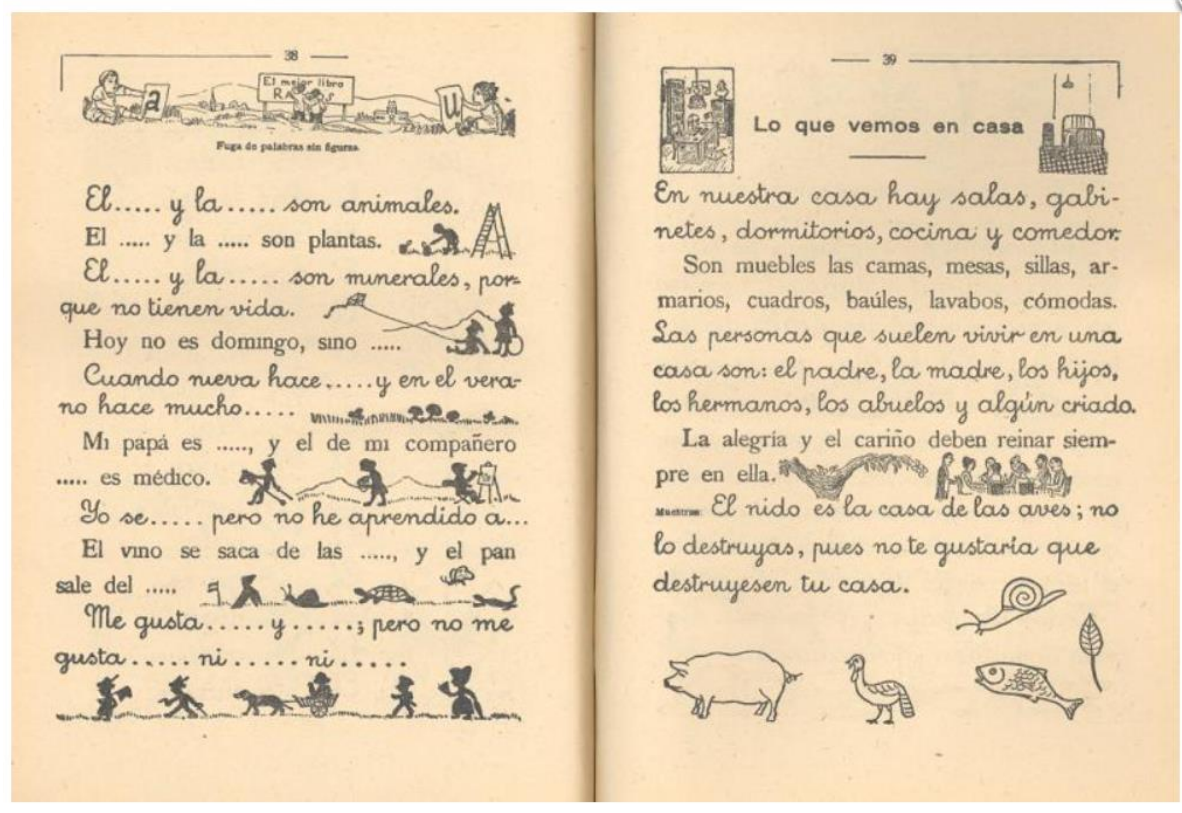 38
a
El mejor libro
u
Fuga de palabras sin figuras.
El..... y la..... son animales.
El ..... y la ..... son plantas.
El..... y la..... son minerales, por-
que no tienen vida.
Hoy no es domingo, sino .....
Cuando nieva hace.....y en el vera-
no hace mucho.....
Mi papá es ....., y el de mi compañero
..... es médico.
Yo se..... pero no he aprendido a...
El vino se saca de las ....., y el pan
sale del .....
Me gusta.....y.....; pero no me
gusta..... ni..... ni.....
39
Lo que vemos en casa
En nuestra casa hay salas, gabi-
netes, dormitorios, cocina y comedor.
Son muebles las camas, mesas, sillas, ar-
marios, cuadros, baúles, lavabos, cómodas.
Las personas que suelen vivir en una
casa son: el padre, la madre, los hijos,
los hermanos, los abuelos y algún criado.
La alegría y el cariño deben reinar siem-
pre en ella.
Muestras: El nido es la casa de las aves; no
lo destruyas, pues no te gustaría que
destruyesen tu casa.